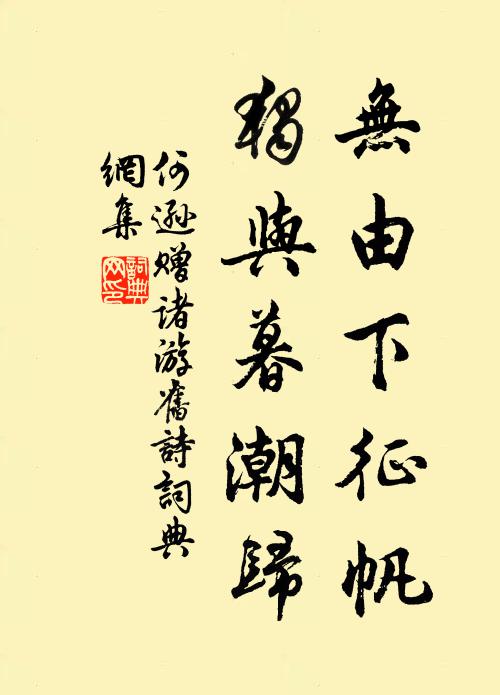 無由下征帆
獨與暮潮歸
何遜贈諸游舊詩詞典
網集
詞典網印